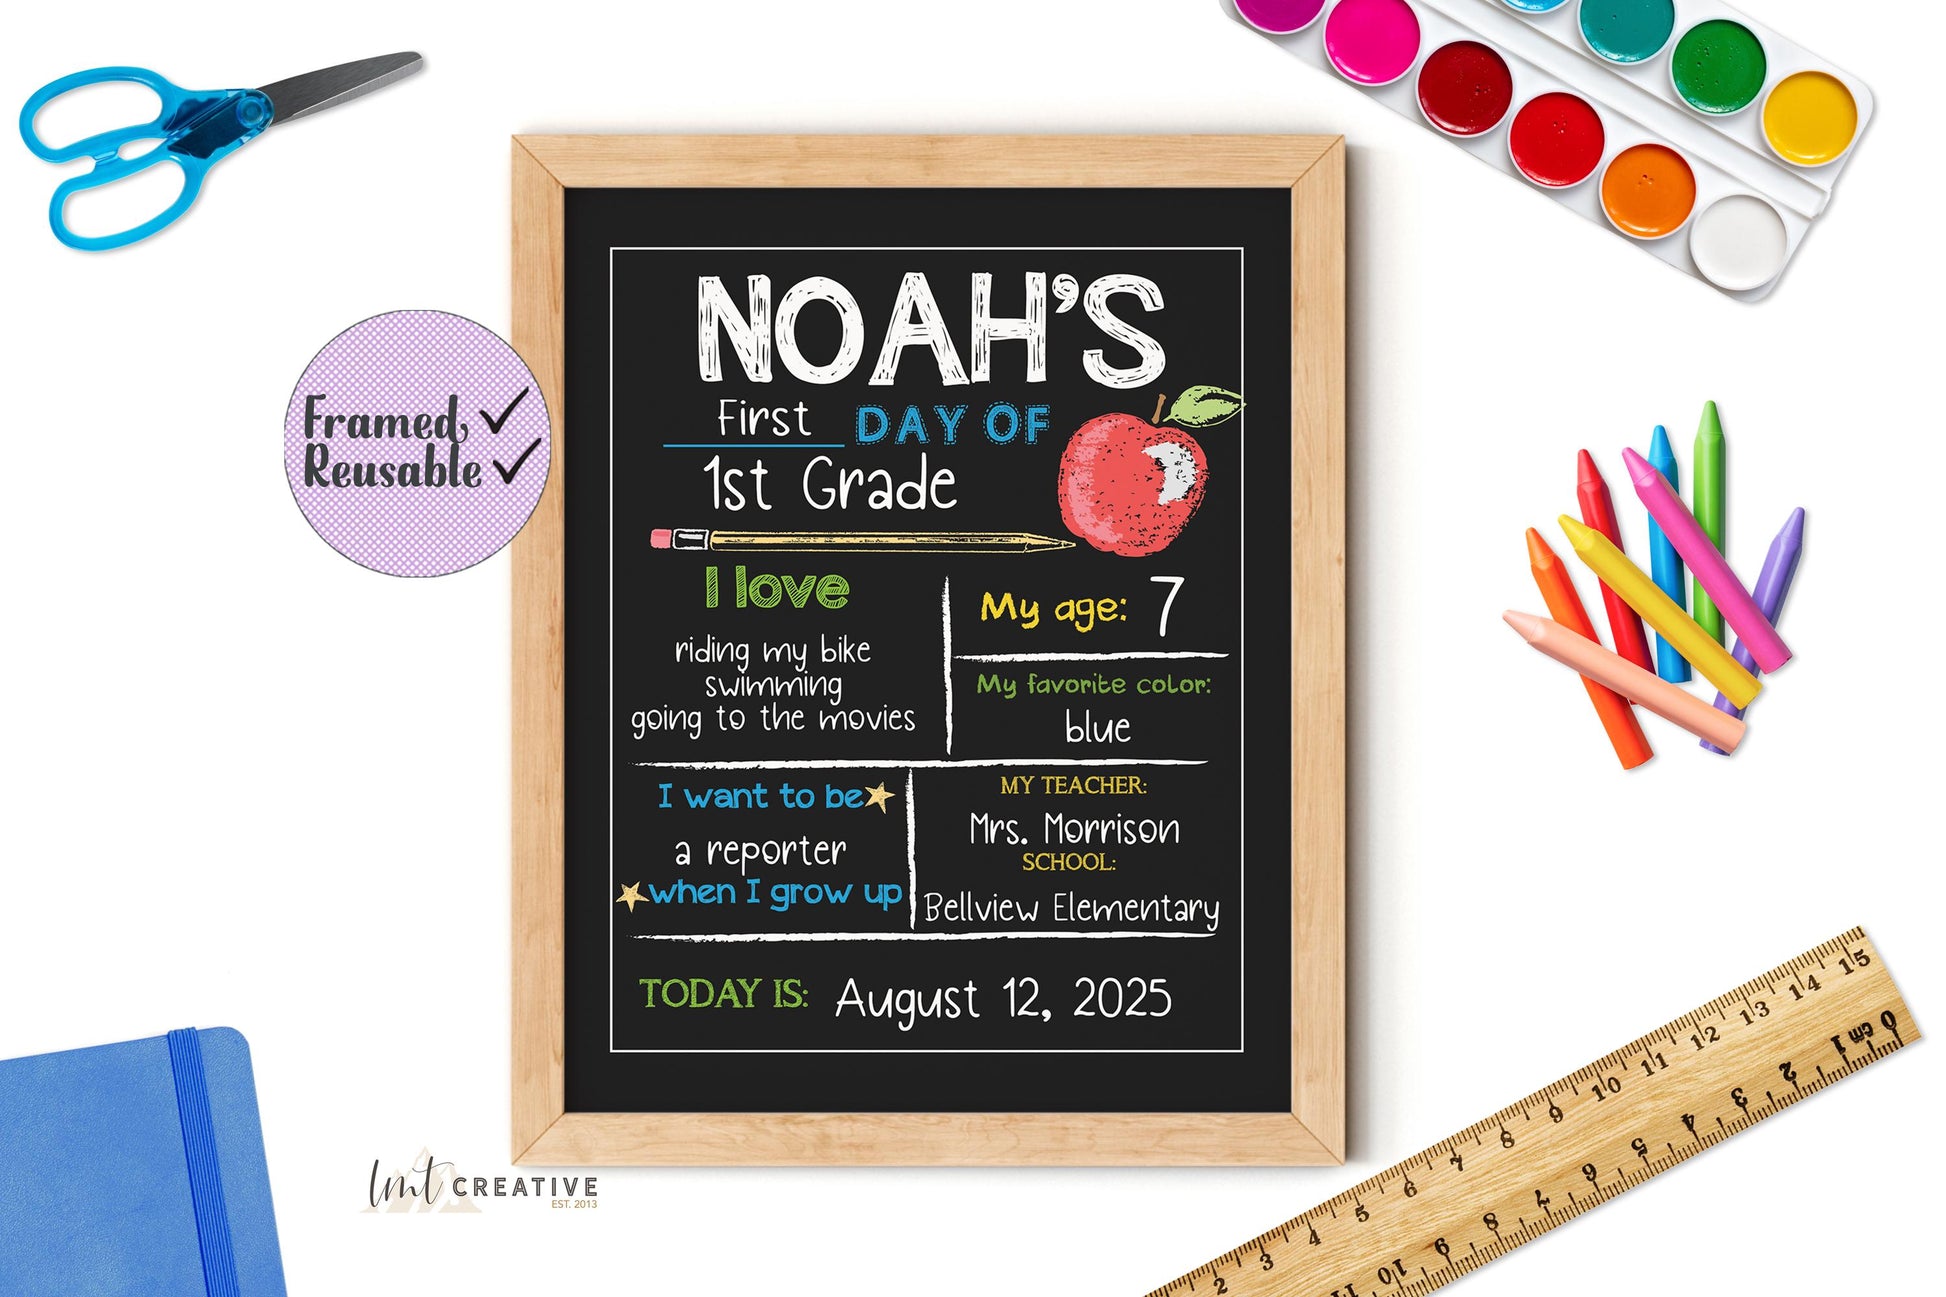 NOAH'S
First DAY OF
1st Grade
I love
riding my bike
swimming
going to the movies
My age: 7
My favorite color:
blue
I want to be
a reporter
when I grow up
MY TEACHER:
Mrs. Morrison
SCHOOL:
Bellview Elementary
TODAY IS: August 12, 2025
Framed, ✓
Reusable ✓
lmt CREATIVE
EST. 2013
2 3 4 5 6 7 8 9 10 11 12 13 14 15
0 cm 1 2 3 4 5 6 7 8 9 10 11